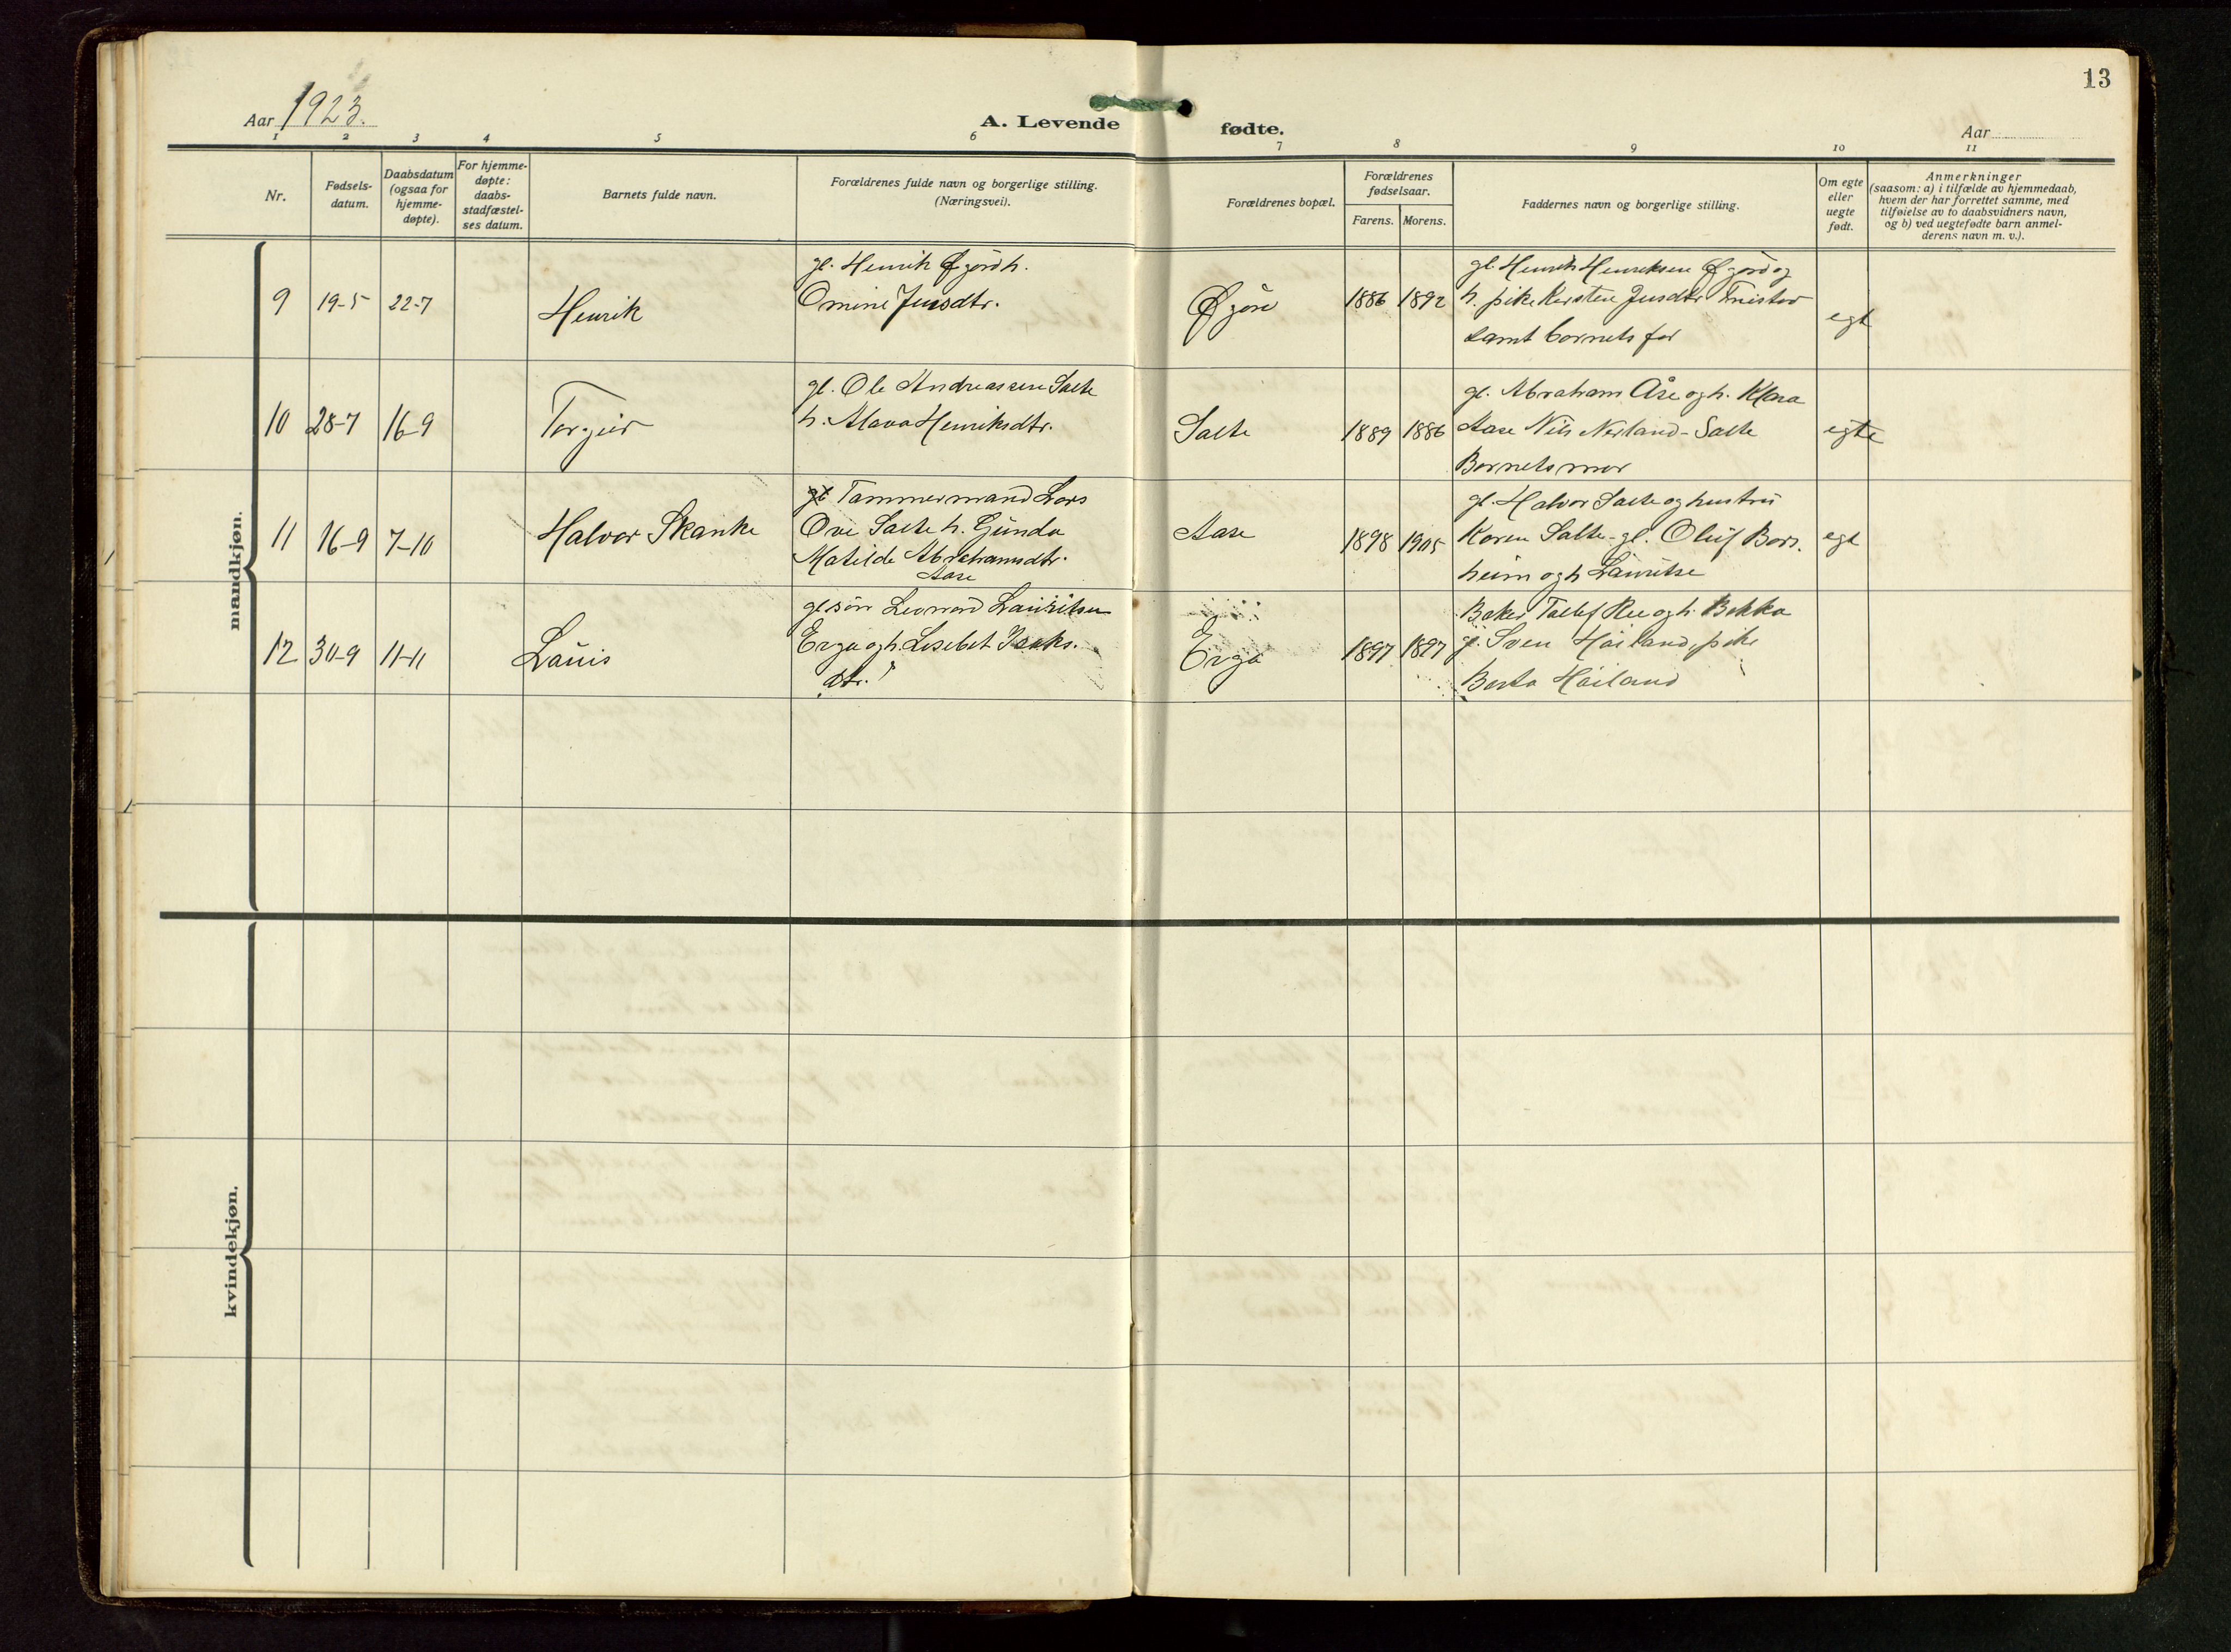 13
Aar 1923.
A. Levende fødte.
Aar
1 2 3 4 5 6 7 8 9 10 11
Nr.
Fødsels-
datum.
Daabsdatum
(ogsaa for
hjemme-
døpte).
For hjemme-
døpte:
daabs-
stadfæstel-
ses datum.
Barnets fulde navn.
Forældrenes fulde navn og borgerlige stilling.
(Næringsvei).
Forældrenes bopæl.
Forældrenes
fødselsaar.
Farens. Morens.
Faddernes navn og borgerlige stilling.
Om egte
eller
uegte
født.
Anmerkninger
(saasom: a) i tilfælde av hjemmedaab,
hvem der har forrettet samme, med
tilføielse av to daabsvidners navn,
og b) ved uegtefødte barn anmel-
derens navn m. v.).
mandkjøn.
9 19-5 22-7
Henrik
gl. Henrik h.
Omine Jensdtr.
1886 1892
gl. Henrik Henriksen og
h. pike Kirsten Jensdtr
samt barnets far
egt
10 28-7 16-9
Torgeir
gl. Ole Andreassen Salte
h. Henriksdtr.
Salte
1889 1886
gl. Abraham Åse og h. Klara
Aase Nils Nerland-Salte
Barnets mor
egte
11 16-9 7-10
Halvor Skanke
Tømmermand Lars
Ove Salte h. Gunda
Matilde Abrahamsdtr.
Aase
Aase
1898 1905
gl. Halvor Salte og hustru
Karen Salte - gl. Oluf Bors-
heim og h Lauritse
egt
12 30-9 11-11
Lauis
Leonard Lauritsen
Erga og h. Lisebet Isaks.
dtr.
Erga
1897 1897
Baker Tallef Ree og h. Bekka
g. Sven Høiland, pike
Berta Høiland
kvindekjøn.